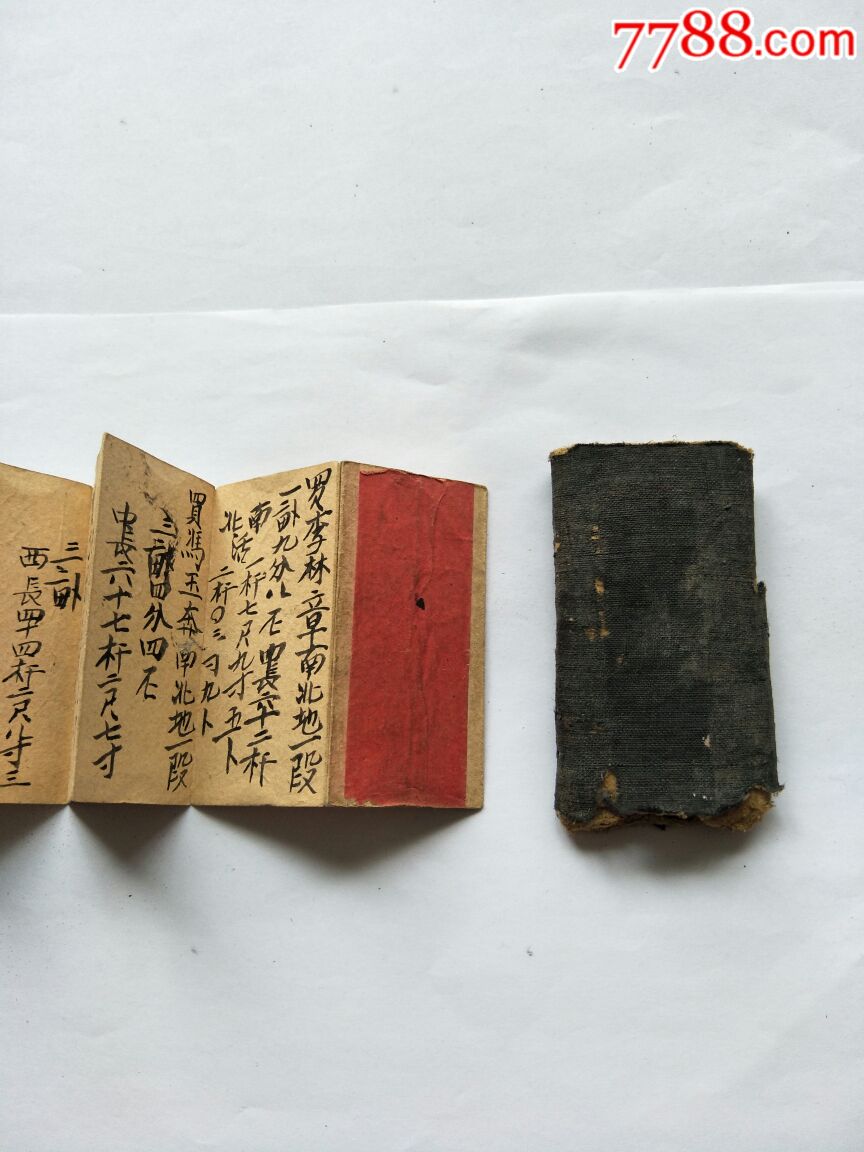 7788.com
買李林章南北地一段
一畝九分八厘中長六十二杆
南一杆七尺九寸五卜
北活二杆〇三寸九卜
買馮玉奔南北地一段
三畝四分四厘
中長六十七杆二尺七寸
三畝
西長四十四杆二尺八寸三